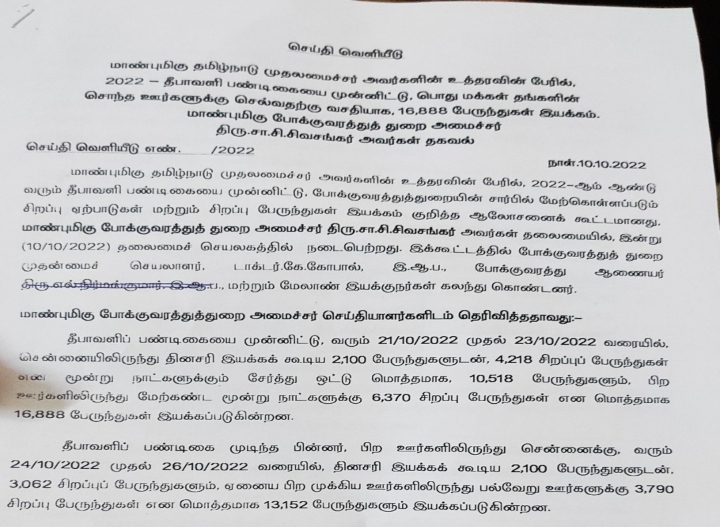 செய்தி வெளியீடு
மாண்புமிகு தமிழ்நாடு முதலமைச்சர் அவர்களின் உத்தரவின் பேரில்,
2022 – தீபாவளி பண்டிகையை முன்னிட்டு, பொது மக்கள் தங்களின்
சொந்த ஊர்களுக்கு செல்வதற்கு வசதியாக, 16,888 பேருந்துகள் இயக்கம்.
மாண்புமிகு போக்குவரத்துத் துறை அமைச்சர்
திரு.சா.சி.சிவசங்கர் அவர்கள் தகவல்
செய்தி வெளியீடு எண். /2022
நாள்.10.10.2022
மாண்புமிகு தமிழ்நாடு முதலமைச்சர் அவர்களின் உத்தரவின் பேரில், 2022–ஆம் ஆண்டு
வரும் தீபாவளி பண்டிகையை முன்னிட்டு, போக்குவரத்துத்துறையின் சார்பில் மேற்கொள்ளப்படும்
சிறப்பு ஏற்பாடுகள் மற்றும் சிறப்பு பேருந்துகள் இயக்கம் குறித்த ஆலோசனைக் கூட்டமானது,
மாண்புமிகு போக்குவரத்துத் துறை அமைச்சர் திரு.சா.சி.சிவசங்கர் அவர்கள் தலைமையில், இன்று
(10/10/2022) தலைமைச் செயலகத்தில் நடைபெற்றது. இக்கூட்டத்தில் போக்குவரத்துத் துறை
முதன்மைச் செயலாளர், டாக்டர்.கே.கோபால், இ.ஆ.ப., போக்குவரத்து ஆணையர்
திரு.எல்.நிர்மல்குமார், இ.ஆ.ப., மற்றும் மேலாண் இயக்குநர்கள் கலந்து கொண்டனர்.
மாண்புமிகு போக்குவரத்துத்துறை அமைச்சர் செய்தியாளர்களிடம் தெரிவித்ததாவது:–
தீபாவளிப் பண்டிகையை முன்னிட்டு, வரும் 21/10/2022 முதல் 23/10/2022 வரையில்,
சென்னையிலிருந்து தினசரி இயக்கக் கூடிய 2,100 பேருந்துகளுடன், 4,218 சிறப்புப் பேருந்துகள்
என மூன்று நாட்களுக்கும் சேர்த்து ஒட்டு மொத்தமாக, 10,518 பேருந்துகளும், பிற
ஊர்களிலிருந்து மேற்கண்ட மூன்று நாட்களுக்கு 6,370 சிறப்பு பேருந்துகள் என மொத்தமாக
16,888 பேருந்துகள் இயக்கப்படுகின்றன.
தீபாவளிப் பண்டிகை முடிந்த பின்னர், பிற ஊர்களிலிருந்து சென்னைக்கு, வரும்
24/10/2022 முதல் 26/10/2022 வரையில், தினசரி இயக்கக் கூடிய 2,100 பேருந்துகளுடன்,
3,062 சிறப்புப் பேருந்துகளும், ஏனைய பிற முக்கிய ஊர்களிலிருந்து பல்வேறு ஊர்களுக்கு 3,790
சிறப்பு பேருந்துகள் என மொத்தமாக 13,152 பேருந்துகளும் இயக்கப்படுகின்றன.